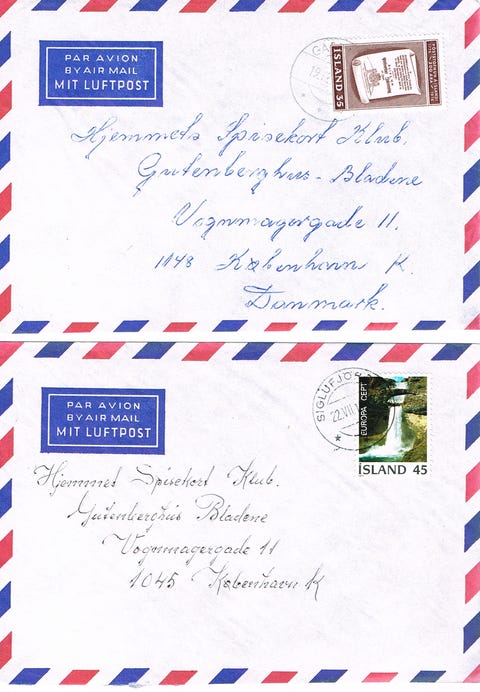 PAR AVION
BY AIR MAIL
MIT LUFTPOST
ÍSLAND 35
19
Hjemmets Spisekort Klub.
Gutenberghus-Bladene
Vognmagergade 11.
1148 København K.
Danmark.
PAR AVION
BY AIR MAIL
MIT LUFTPOST
SIGLUFJÖR
22.VII
EUROPA CEPT
ÍSLAND 45
Hjemmet Spisekort Klub.
Gutenberghus Bladene
Vognmagergade 11
1045 København K